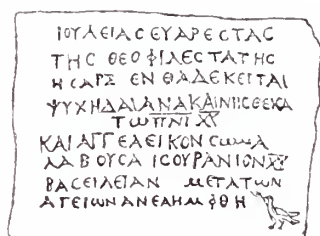 ΙΟΥΛΕΙΑϹ ΕΥΑΡΕϹΤΑϹ
ΤΗϹ ΘΕΟΦΙΛΕϹΤΑΤΗϹ
ΗϹΑΡΞ ΕΝΘΑΔΕΚΕΙΤΑΙ
ΨΥΧΗΔΑΙΑΝΑΚΑΙΝΙΙϹΘΕΚΑ
ΤΩΠΝΙ ΧΥ
ΚΑΙ ΑΓΓΕΛΕΙΚΟΝ ϹΩΜΑ
ΛΑΒΟΥϹΑ ΙϹΟΥΡΑΝΙΟΝ ΧΥ
ΒΑϹΕΙΛΕΙΑΝ ΜΕΤΑΤΩΝ
ΑΓΕΙΩΝΑΝΕΛΗΜΦΘΗ